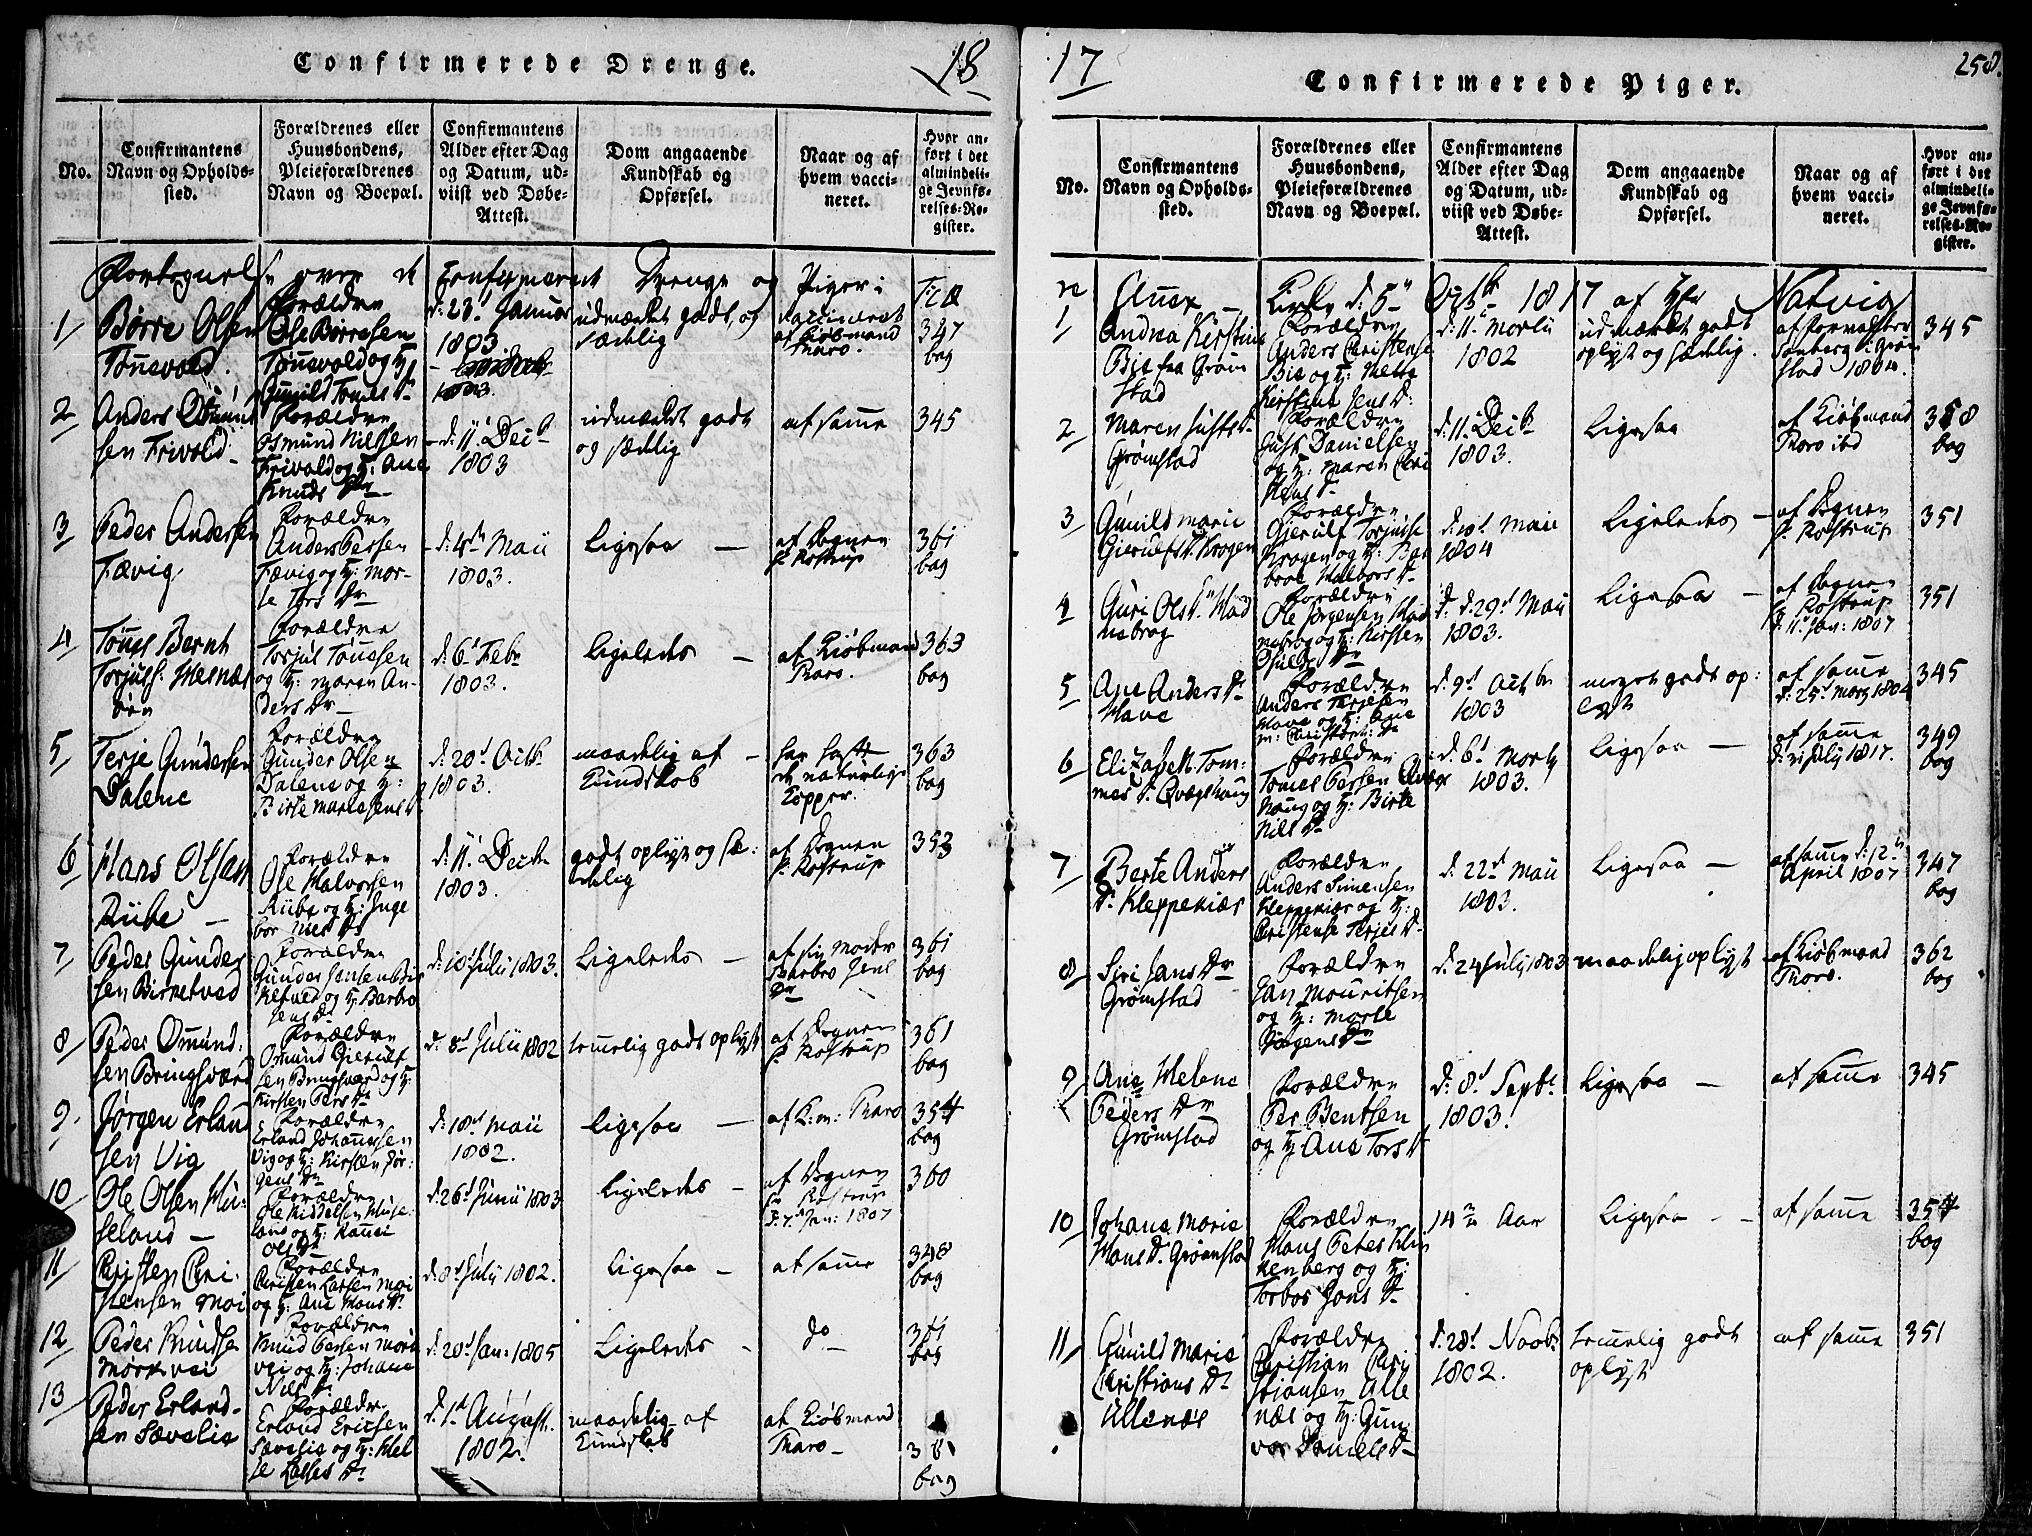 Confirmerede Drenge.
18
No.
Confirmantens Navn og Opholds-sted.
Forældrenes eller Huusbondens, Pleieforældrenes Navn og Boepæl.
Confirmantens Alder efter Dag og Datum, ud-viist ved Døbe-Attest.
Dom angaaende Kundskab og Opførsel.
Naar og af hvem vacci-neret.
Hvor an-ført i det almindeli-ge Jevnfø-relses-Re-gister.
Fortegnelse over de Confirmeret Drenge og Piger i
1 Børre Olsen Tønnevold.
Forældre Ole Børresen Tønnevold og H: Gunild Tomes Dr
d: 23d Januar 1803
udmærket godt, og sædelig
Vaccineret af Kiøbmand Tharo.
347 bag
2 Anders Osmundsen Frivold
Forældre Osmund Nilssen Frivold og H: Ane Knuds Dr
d: 11t Decbr 1803
udmærket godt og sædelig
af samme
345
3 Peder Andersen Fævig
Forældre Anders Perssen Fævig og H: Mor-se Tors Dr
d: 4de Maii 1803.
Ligesaa
af Sognepr. Rostrup
361 bag
4 Tomes Bernt Torjuls. Hesnæsøen
Forældre Torjul Tomessen og H: Maren An-ders Dr
d: 6t Febr 1803.
Ligeledes
af Kiøbmand Tharo.
363 bag
5 Terje Gundersen Dalene
Forældre Gunder Olsen Dalene og H: Birte Mariesens Dr
d: 20d Octbr 1803.
maadelig af Kundskab
har haft de naturlige Kopper.
363 bag
6 Hans Olsen Riibe
Forældre Ole Halvorsen Riibe og H: Inge bor Niels Dr
d: 11t Decbr 1803.
godt oplyst og sæ-delig
af Sognepr. Rostrup
353
7 Peder Gunder sen Birketved
Forældre Gunder Jensen Bir ketved og H: Barbo Jens Dr
d: 10d Julii 1803.
Ligeledes
af sin Moder Barbro Jens Dr
361 bag
8 Peder Omund-sen Bringsværd
Forældre Omund Gierulf sen Bringsværd og H: Kirsten Pers Dr
d: 8d Julii 1802
temmelig godt oplyst
af Sognepr. Rostrup
361 bag
9 Jørgen Erland sen Vig
Forældre Erland Johannesen Vig og H: Kirsten Jør-gens Dr
d: 18d Maii 1802.
Ligesaa
af K.m: Tharo
354 bag
10 Ole Olsen Hu-seland
Forældre Ole Kiddelsen Huse-land og H: Ols Dr
d: 26d Junii 1803
Ligeledes
af Sognepr. Rostrup d. 7d Jan: 1807
360
11 Christen Chri-stensen Moi
Forældre Christen Larsen Moi og H: Ane Hans Dr
d: 8d Julii 1802.
Ligesaa
af samme
348 bag
12 Peder Knudse Mørkvei
Forældre Knud Persen Mørk vei og H: Johane Nils Dr
d: 20d Jan: 1805
Ligeledes
do
361 bag
13 Peder Erland-sen Sævelie
Forældre Erland Ericsen Sævelie og H: Else Lasses Dr
d: 1d August. 1802.
maadelig af Kundskab
af Kiøbmand Tharo
361 bag
17
Confirmerede Piger.
258.
No.
Confirmantens Navn og Opholds-sted.
Forældrenes eller Huusbondens, Pleieforældrenes Navn og Boepæl.
Confirmantens Alder efter Dag og Datum, ud-viist ved Døbe-Attest.
Dom angaaende Kundskab og Opførsel.
Naar og af hvem vacci-neret.
Hvor an-ført i det almindeli-ge Jevnfø-relses-Re-gister.
Annex Kirke d: 5te Octbr 1817 af Hr Natvig
1 Andrea Kirstine Bie fra Grøm stad
Forældre Anders Christense Bie og H: Mette Kirstine Jens Dr
d: 11te Martii 1802
udmærket godt oplyst og sædelig.
i Grøm stad 1804.
345
2 Maren Justs Dr Grømstad
Forældre Just Danielsen og H: Maren Chri Hans Dr
d: 11t Decbr 1803.
Ligesaa
af Kiøbmand Tharo ibd
358 bag
3 Gunild Marie Gierulfs Dr Krogen
Forældre Gjerulf Torjuse Krogen og H: Bar broe Halvors Dr
d: 10d Maii 1804
Ligeledes
af Sognepr. Rostrup
351
4 Guri Ols Dr
Forældre Ole Jørgensen og H: Kirsten Dr
d: 29d Maii 1803.
Ligesaa
af Sognepr. Rostrup d. 11t Jan: 1807
351
5 Ane Anders Dr Have
Forældre Anders Terjesen Have og H: Ane M: Christens Dr
d: 9d Octbr 1803
meget godt op-lyst
af samme d: 25d Marz 1804
345
6 Elizabeth Tom-mes Dr Qvægshaug
Forældre Tomes Persen Qvægs Houg og H: Birte Nils Dr
d: 6d Marty 1803.
Ligesaa
af samme July 1817.
349 bag
7 Berte Anders Dr Kleppekiær
Forældre Anders Simensen Kleppekiær og H: Christense Terjes Dr
d: 22d Maii 1803.
Ligesaa
af samme d: 12te April 1807
347 bag
8 Siri Jans Dr Grømstad
Forældre Jan Mouritsen og H: Morte Dr
d: 24 July 1803
maadelig oplyst
af Kiøbmand Tharo.
362 bag
9 Ane Helene Peders Dr Grømstad
Forældre Per Bentsen og H: Ane Tors Dr
d: 8d Septbr 1803.
Ligesaa
af samme
345
10 Johane Marie Hans Dr Grømstad
Forældre Hans Peter Klin kenberg og H: Torbor Jans Dr
14 Aar
Ligesaa
af samme
354 bag
11 Gunild Marie Christians Dr Ullenæs
Forældre Christian Chri stiansen Ulle næs og H: Gun vor Daniels Dr
d: 28d Novbr 1802.
temmelig godt oplyst
af samme
351